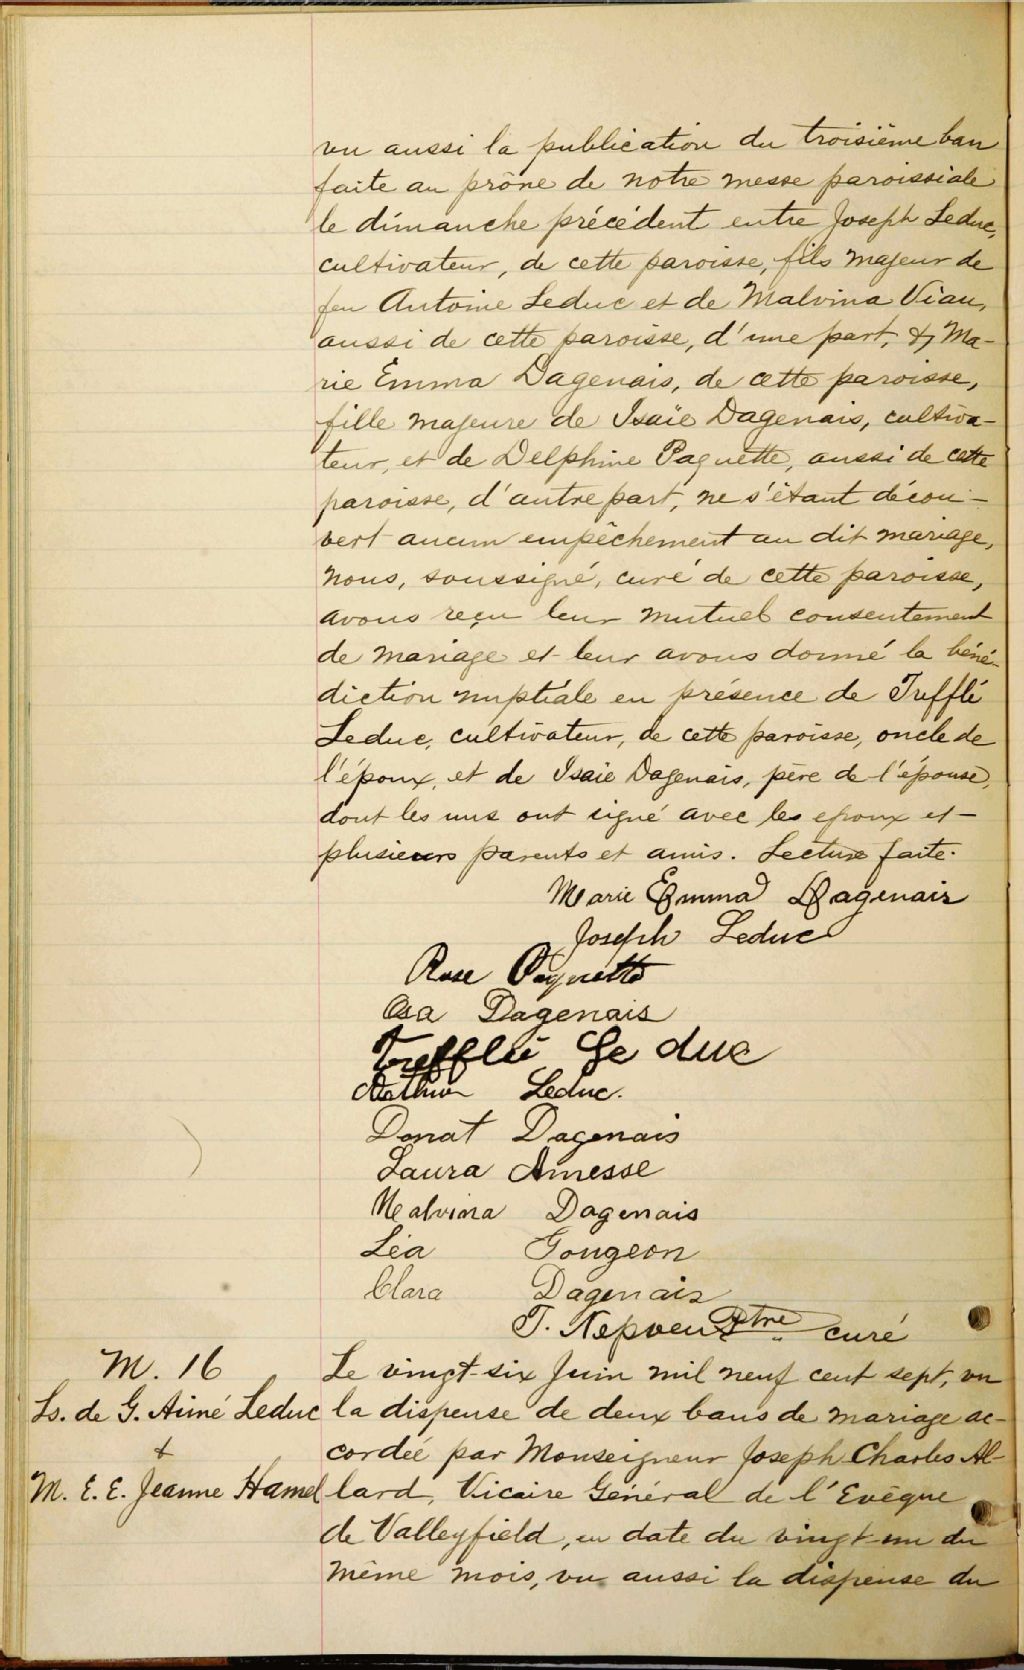 vu aussi la publication du troisième ban
faite au prône de notre messe paroissiale
le dimanche précédent entre Joseph Leduc,
cultivateur, de cette paroisse, fils majeur de
feu Antoine Leduc et de Malvina Viau,
aussi de cette paroisse, d'une part, & Ma-
rie Emma Dagenais, de cette paroisse,
fille majeure de Isaïe Dagenais, cultiva-
teur, et de Delphine Paquette, aussi de cette
paroisse, d'autre part, ne s'étant décou-
vert aucun empêchement au dit mariage,
nous, soussigné, curé de cette paroisse,
avons reçu leur mutuel consentement
de mariage et leur avons donné la béné-
diction nuptiale en présence de Trefflé
Leduc, cultivateur, de cette paroisse, oncle de
l'époux, et de Isaie Dagenais, père de l'épouse,
dont les uns ont signé avec les epoux et
plusieurs parents et amis. Lecture faite.
Marie Emma Dagenais
Joseph Leduc
Rose Paquette
Dagenais
Trefflé Le duc
Leduc.
Donat Dagenais
Laura Amesse
Malvina Dagenais
Léa Gougeon
Clara Dagenais
T. Nepveu Ptre curé
M. 16
Ls. de G. Aimé Leduc
&
M. E. E. Jeanne Hamel
Le vingt-six Juin mil neuf cent sept, vu
la dispense de deux bans de mariage ac-
cordée par Monseigneur Joseph Charles Al-
lard, Vicaire Général de l'Evêque
de Valleyfield, en date du vingt-un du
même mois, vu aussi la dispense du